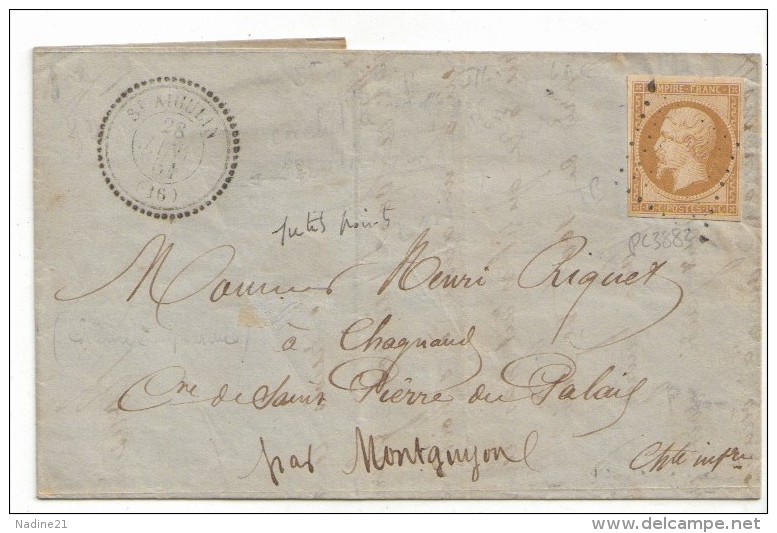 ST AIGULIN
28
(16)
EMPIRE FRANC
POSTES
PC3883
petits points
Monsieur Henri Riquet
à Chagnaud
Cne de Saint Pierre du Palais
par Montguyon
Chte infre
Nadine21
delcampe.net